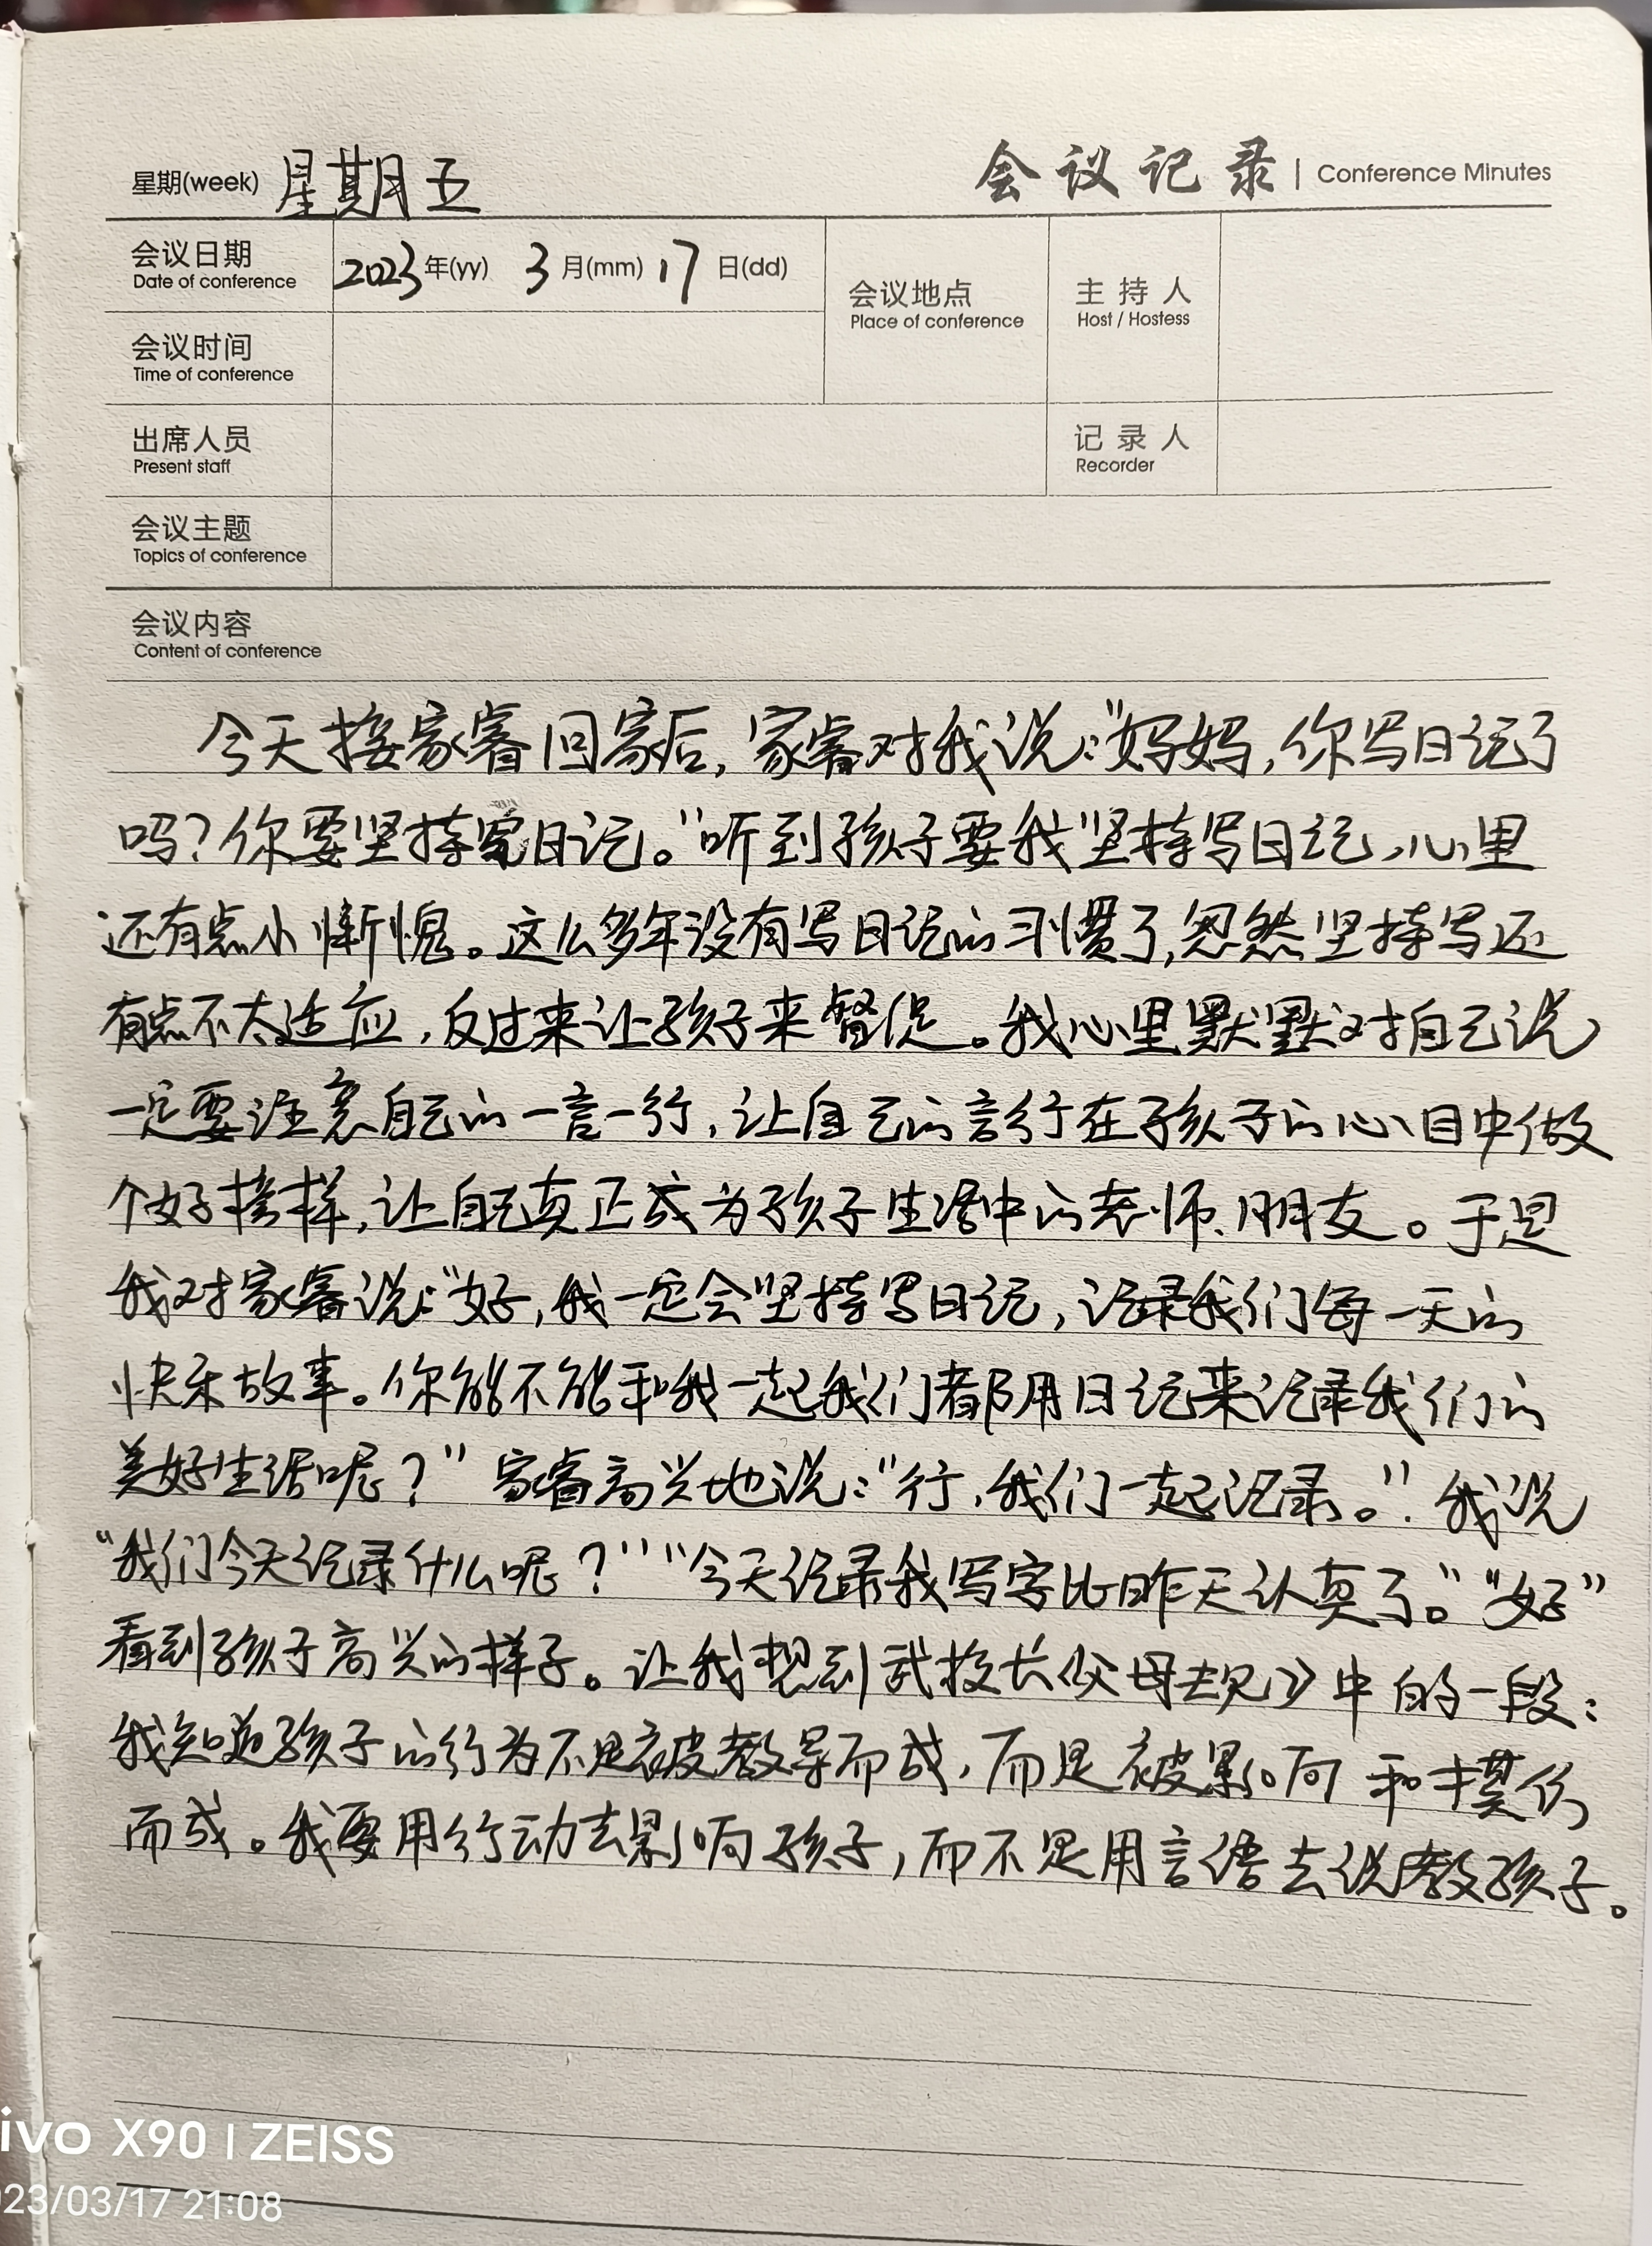 星期(week) 星期五
会议记录 | Conference Minutes
会议日期 2023年(yy) 3月(mm) 17日(dd)
Date of conference
会议地点
Place of conference
主持人
Host / Hostess
会议时间
Time of conference
出席人员
Present staff
记录人
Recorder
会议主题
Topics of conference
会议内容
Content of conference
今天接家睿回家后,家睿对我说:“妈妈,你写日记了
吗?你要坚持写日记。”听到孩子要我坚持写日记,心里
还有点小惭愧。这么多年没有写日记的习惯了,忽然坚持写还
有点不太适应,反过来让孩子来督促。我心里默默对自己说
一定要注意自己的一言一行,让自己的言行在孩子的心目中做
个好榜样,让自己真正成为孩子生活中的老师、朋友。于是
我对家睿说:“好,我一定会坚持写日记,记录我们每一天的
快乐故事。你能不能和我一起我们都用日记来记录我们的
美好生活呢?”家睿高兴地说:“行,我们一起记录。”. 我说
“我们今天记录什么呢?”“今天记录我写字比昨天认真了。”“好”
看到孩子高兴的样子。让我想到武校长《父母去见》中的一段:
我知道孩子的行为不是被教导而成,而是被影响和模仿
而成。我要用行动去影响孩子,而不是用言语去说教孩子。
ivo X90 | ZEISS
023/03/17 21:08